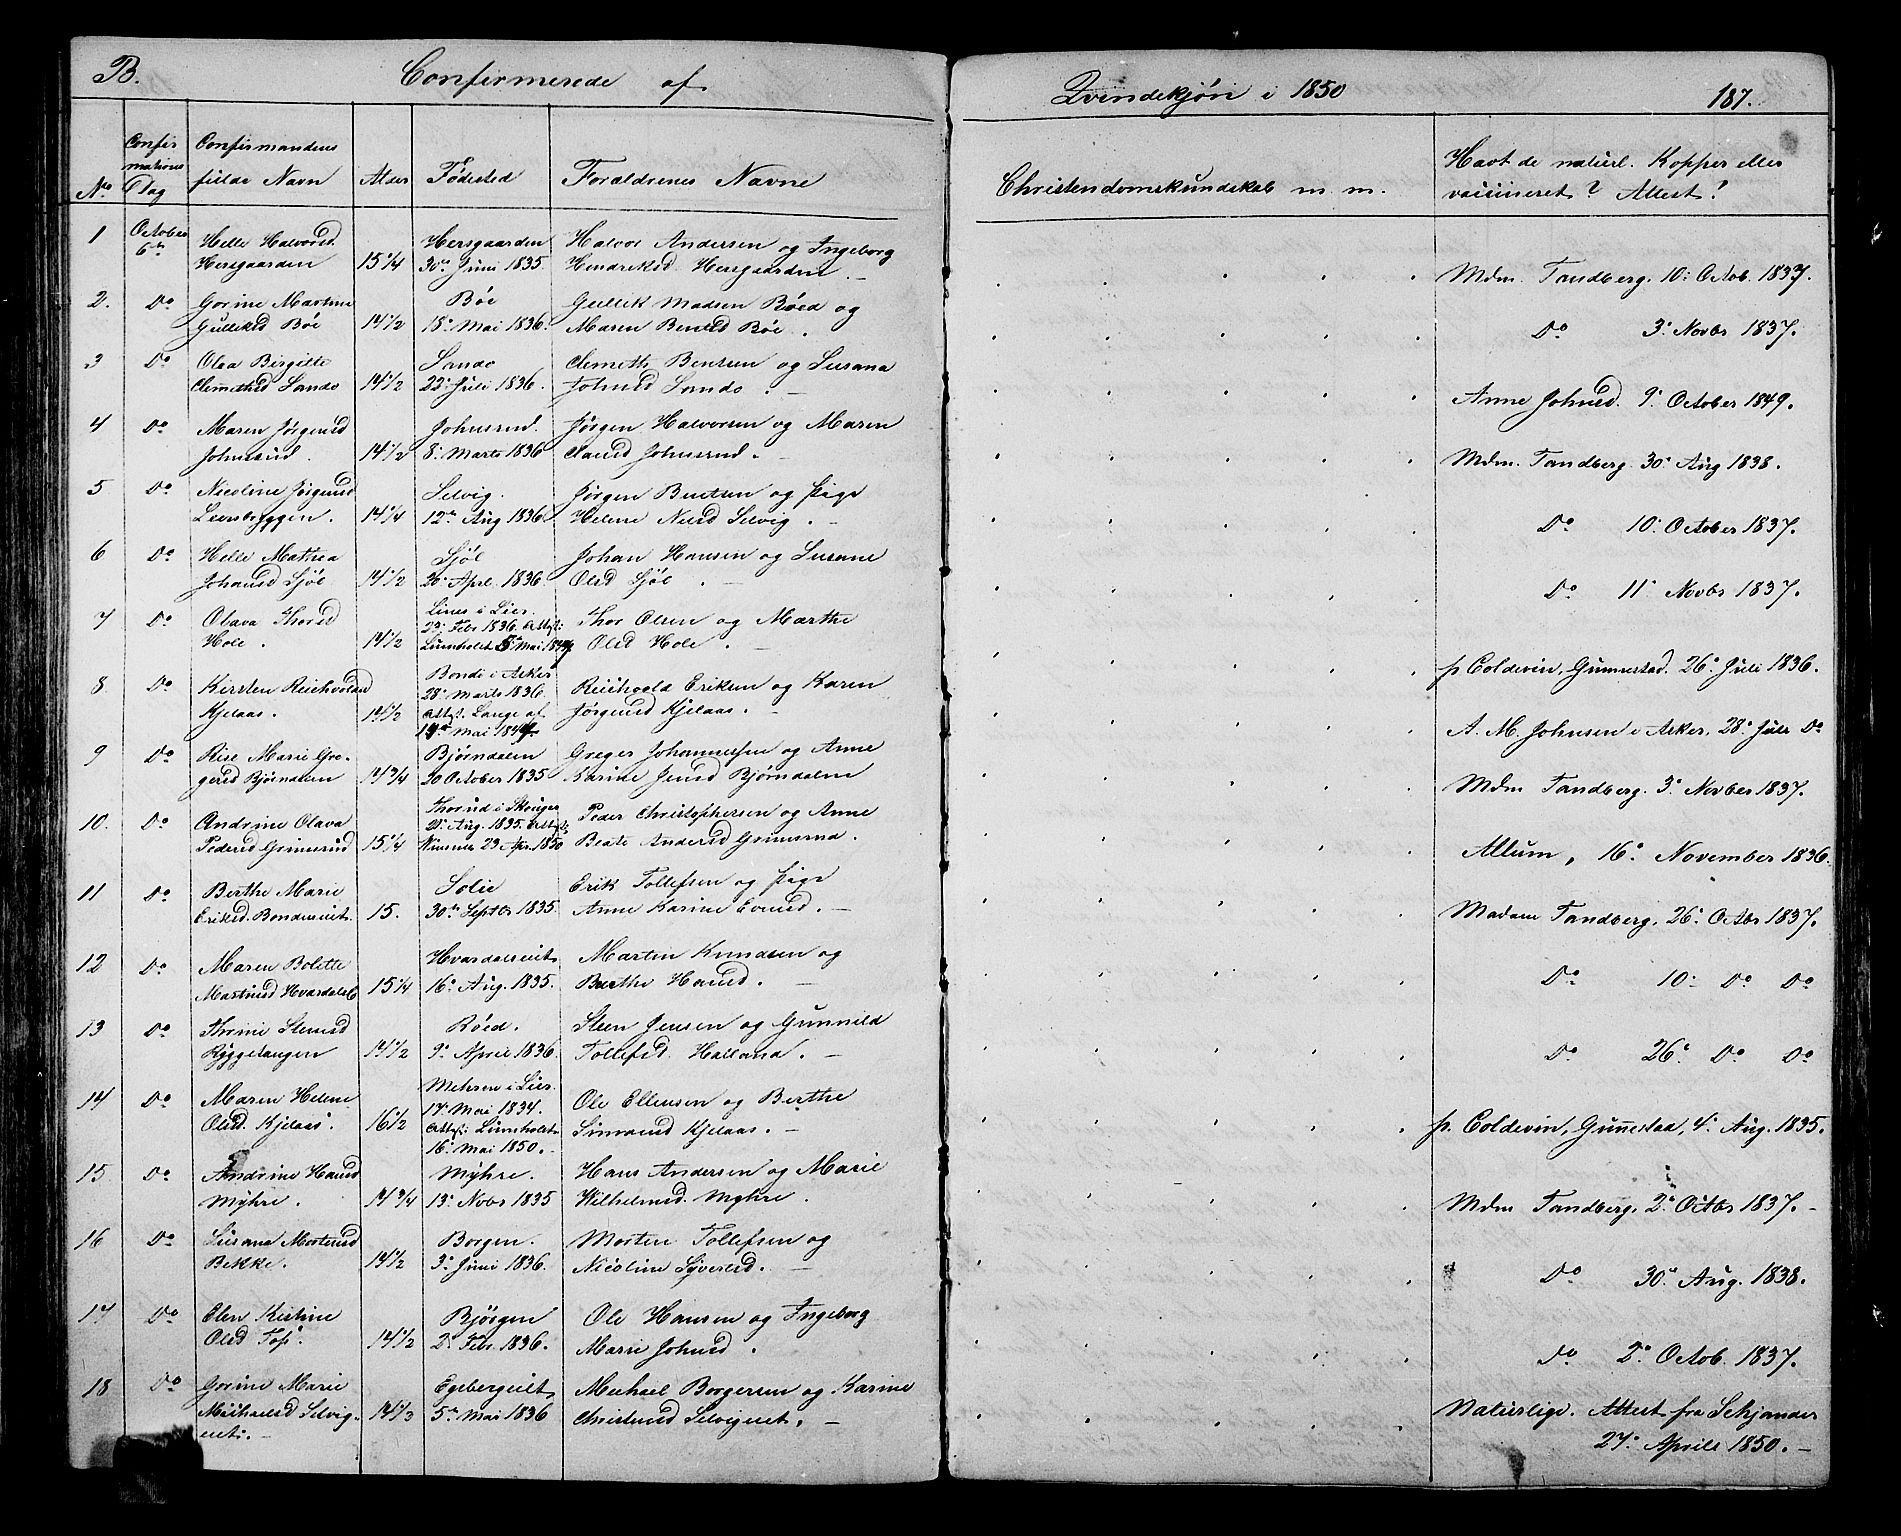 B. Confirmerede af Qvindekjøn i 1850 187.
No Confirmations Dag Confirmandens fulde Navn Alder Fødested Forældrenes Navne Christendomskundskab m. m. Havt de naturl. Kopper eller vaccineret? Attest?
1 October 6te Helle Halvorsd. Hersgaarden 15 1/4 Hersgaarden 30te Juni 1835. Halvor Andersen og Ingeborg Hendriksd. Hersgaarden. — Mdm. Tandberg. 10: Octob. 1837.
2. Do Gorine Martine Gulliksd Bøe 14 1/2 Bøe 18: Mai 1836. Gullik Madsen Bøed og Maren Bentsd Bøe. Do 3: Novbr 1837.
3 Do Olaa Birgitte Clemetsd Sando 14 1/2 Sando 22: Juli 1836. Clemeth Bentsen og Susana Johnsd Sando. — Anne Johnsd. 9: October 1849.
4 Do Maren Jørgensd Johnsrud. 14 1/2 Johnsrud. 8: Marts 1836 Jørgen Halvorsen og Maren Clausd Johnsrud. — Mdm. Tandberg. 30: Aug 1838.
5 Do Nicoline Jørgensd Leersbryggen. 14 1/4 Selvig. 12te Aug 1836. Jørgen Bentsen og Pige Helene Nilsd Selvig. — Do 10: October 1837.
6 Do Helle Mathea Johansd Sjøl 14 1/2 Sjøl 20: Apr. 1836. Johan Hansen og Susane Olsd Sjøl. — Do 11: Novbr 1837.
7 Do Olava Thorsd Hole. 14 1/2 Lines i Lier. 23: Febr 1836. Attst: Lumholtz 5te Mai Thor Olsen og Marthe Olsd Hole. — p. Coldevin, Gunnestad. 26: Juli 1836.
8 Do Kirsten Reichvoldsd Kjelaas. 14 1/2 Bondi i Asker 28: Marts 1836. Attst. Lange af Mai Reichvold Eriksen og Karen Jørgensd Kjelaas. — A. M. Johnsen i Asker, 28: Juli Do
9 Do Rise Marie Gregersd Bjørndalen 14 3/4 Bjørndalen 20 October 1835 Greger Johannesen og Anne Karine Jensd Bjørndalen Mdm Tandberg. 3: Novber 1837.
10. Do Andrine Olava Pedersd Grimsrud 15 1/4 Thorud i Skouger 21: Aug. 1835. Attst: 23 Apr. 1850 Peder Christophersen og Anne Beate Andersd Grimsrud. Allum, 16: November 1836.
11 Do Berthe Marie Eriksd. Bondereiet. 15. Solie 30te Septbr 1835. Erik Tollefsen og Pige Anne Karine Evensd. — Madam Tandberg, 26: Octbr 1837.
12 Do Maren Bolette Martinsd Hvardals 15 1/4 Hvardalseiet 16: Aug. 1835. Martin Knudsen og Berthe Hansd. — Do 10: Do Do
13 Do Thrine Steensd Ryggetangen 14 1/2 Røed. 9: April 1836. Steen Jensen og Gunnild Tollefsd. Halland. — Do 26: Do Do
14 Do Maren Helene Olsd. Kjelaas. 16 1/2 Mehren i Lier. 17: Mai 1834. Attst: Lumholtz 16: Mai 1850. Ole Ellensen og Berthe Simensd Kjelaas. — p. Coldevin, Gunnestad, 4: Aug. 1835.
15 Do Andrine Hansd Myhre. 14 3/4 Myhre. 13: Novbr 1835 Hans Andersen og Marie Wilhelmsd. Myhre. Mdm Tandberg, 2: Octbr 1837.—
16 Do Susana Mortensd Bekke. 14 1/2 Borgen. 3: Juni 1836. Morten Tollefsen og Nicoline Syversd. — Do 30: Aug. 1838.
17 Do Elen Kistine Olsd Tofs. 14 1/2 Bjørgen 2: Febr. 1836. Ole Hansen og Ingeborg Marie Johnsd. Do 2: Octob. 1837.
18 Do Gorine Marie Michaelsd Selvigeiet. — 14 1/3 Egebergeiet 5te Mai 1836 Michael Borgersen og Karine Christensd Selvigeiet. — Naturlige. Attest fra Schjander 27: Aprill 1850. —